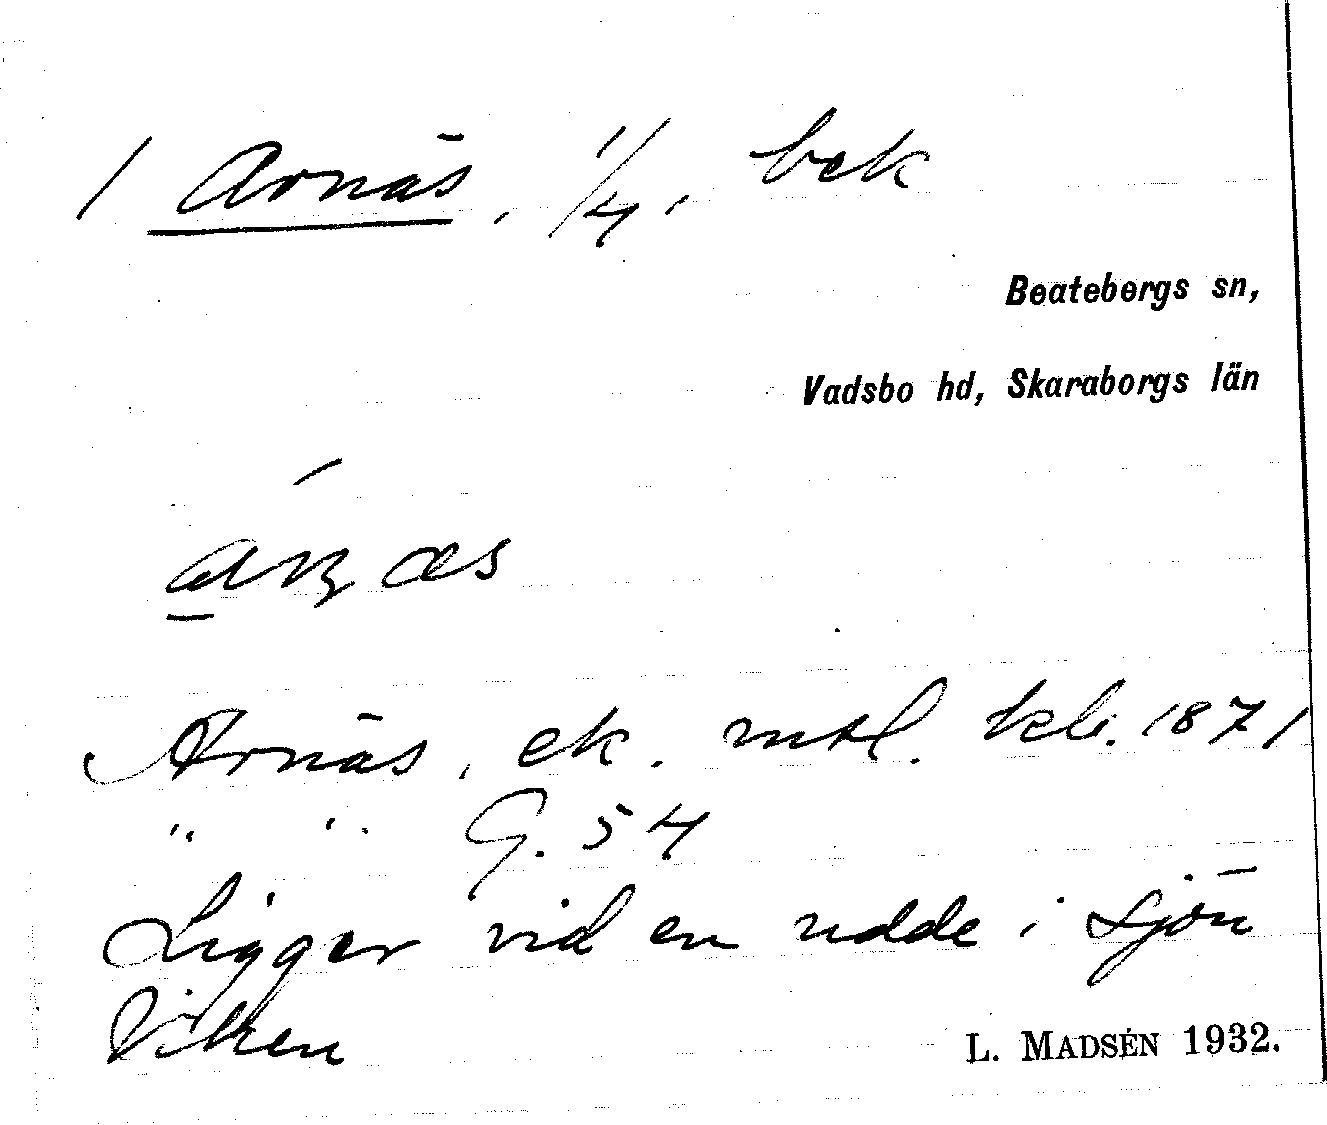 1 Arnäs, 1/4, bek
Beatebergs sn,
Vadsbo hd, Skaraborgs län
Arnäs, ek. mtl. kb. 1871
" " G. 54
Ligger vid en udde i sjön
Viken
L. MADSÉN 1932.